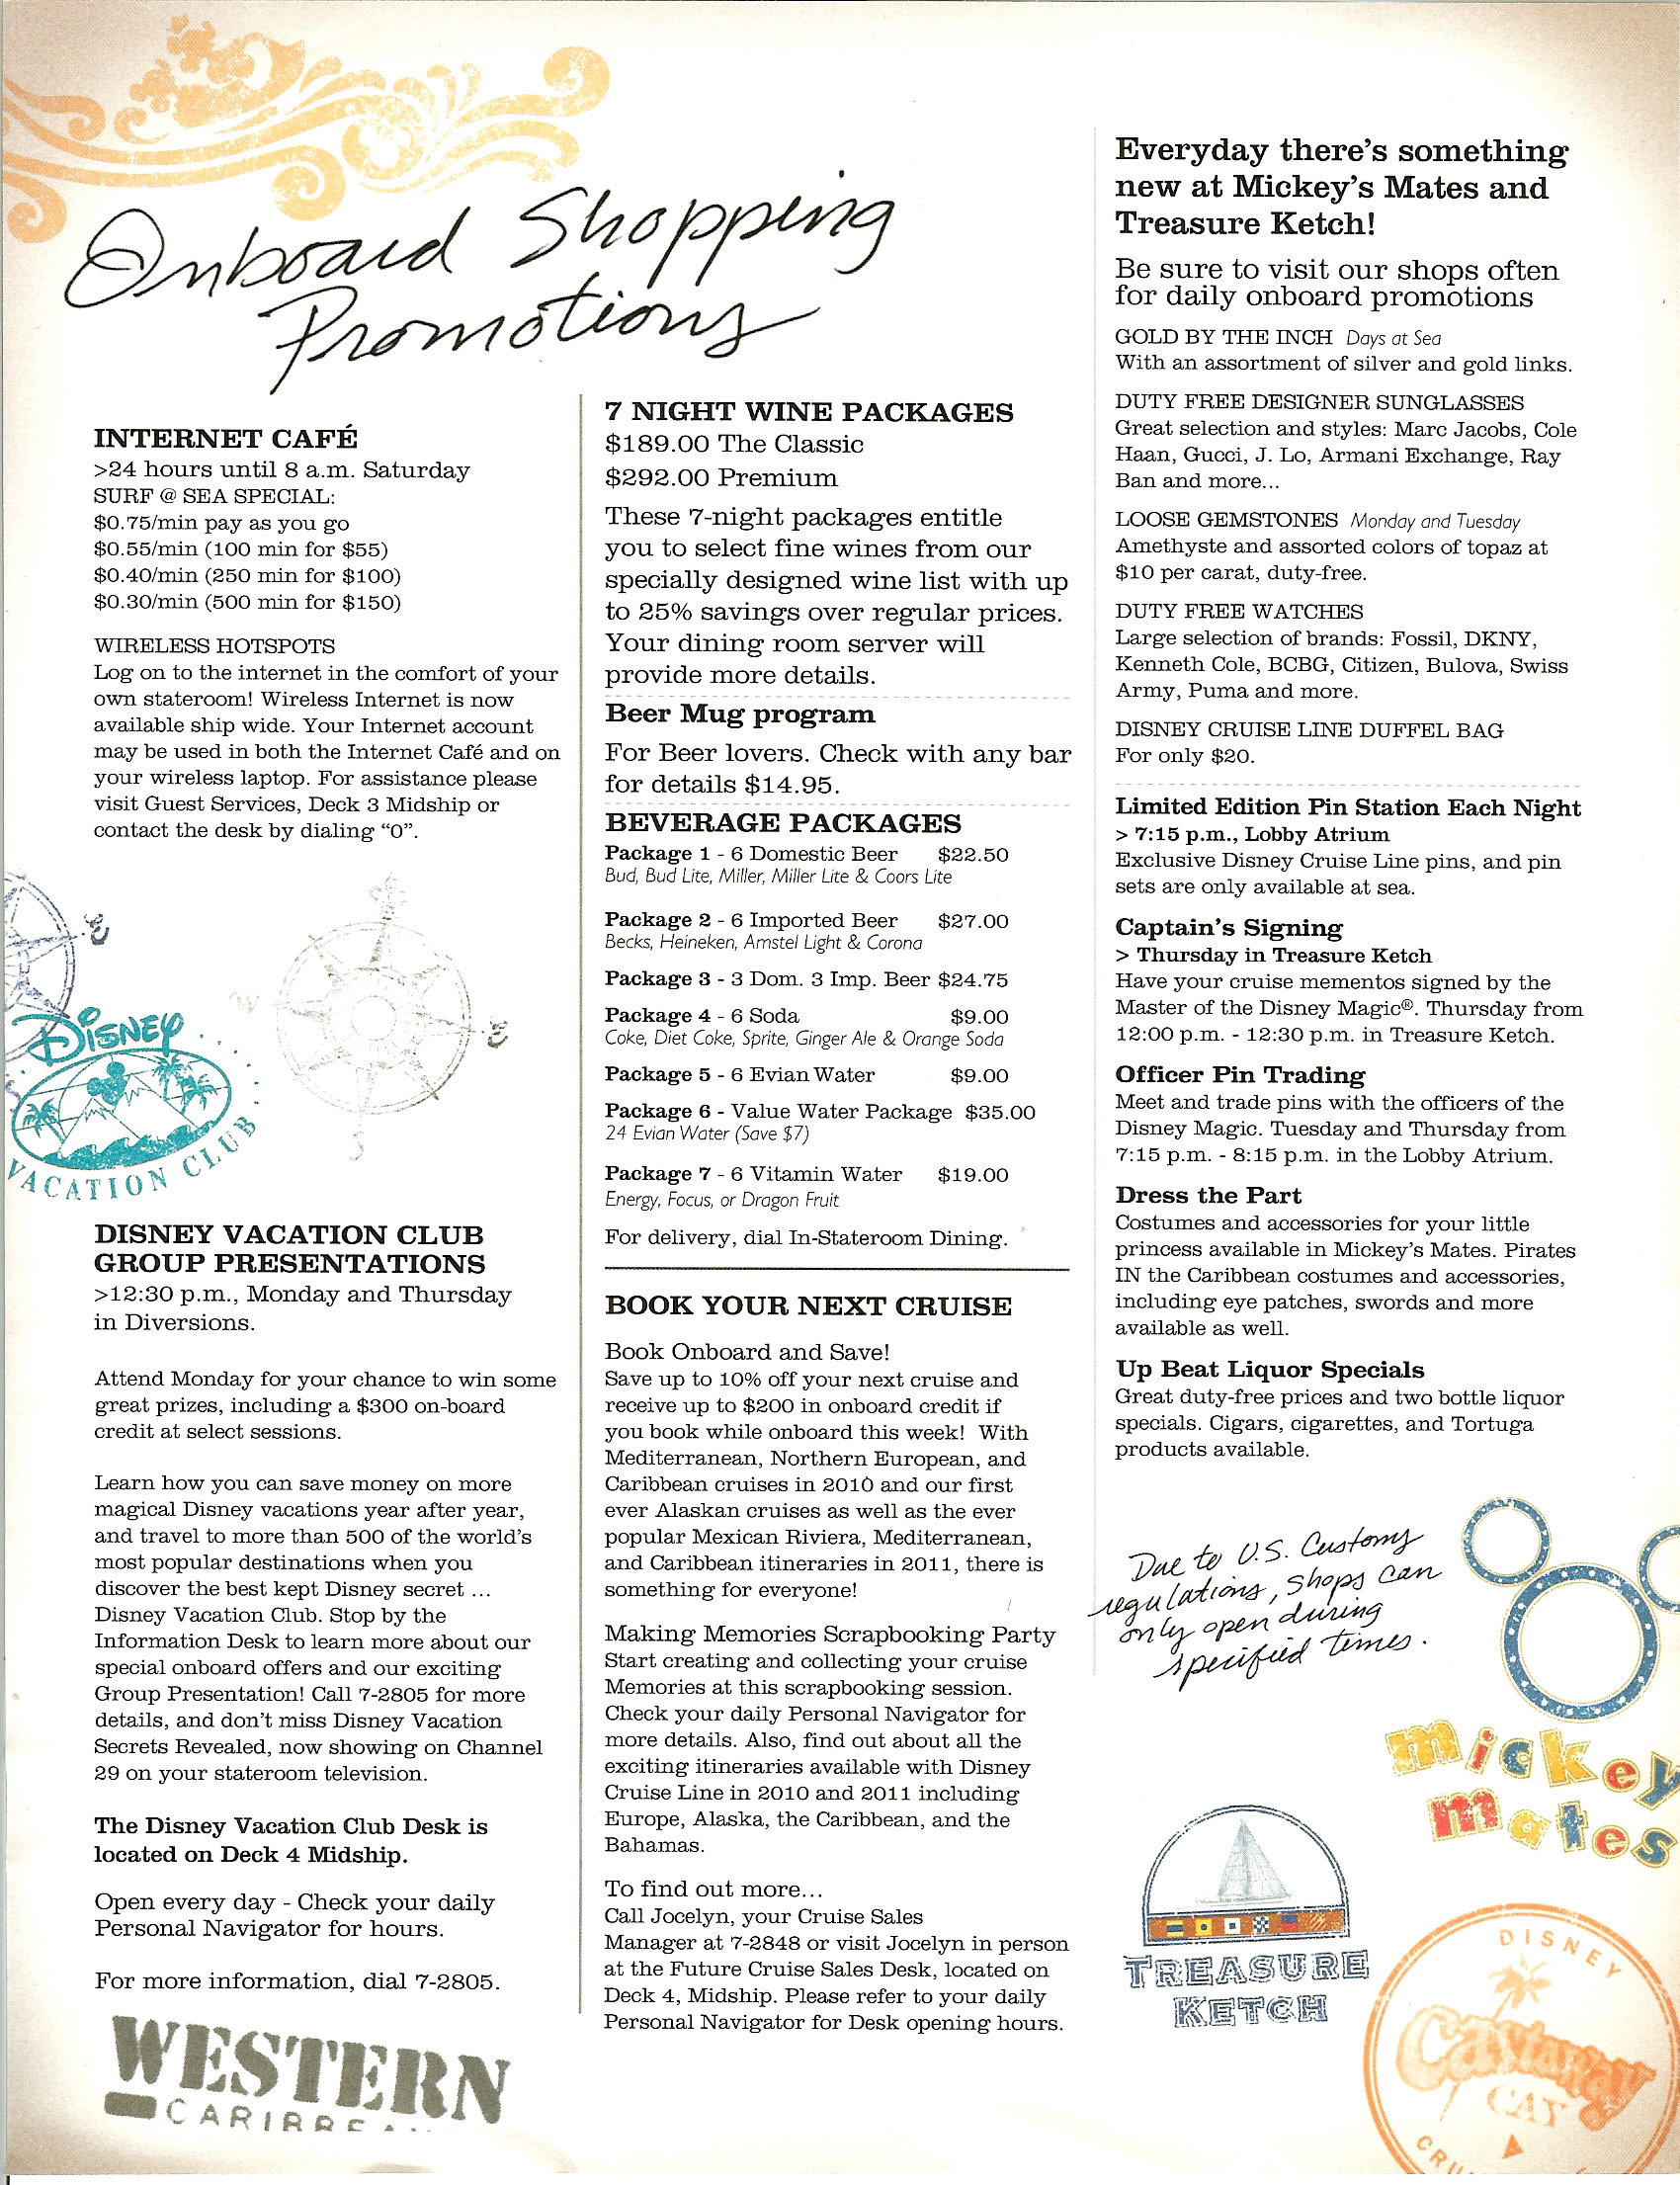 Onboard Shopping
Promotions
INTERNET CAFÉ
>24 hours until 8 a.m. Saturday
SURF @ SEA SPECIAL:
$0.75/min pay as you go
$0.55/min (100 min for $55)
$0.40/min (250 min for $100)
$0.30/min (500 min for $150)
WIRELESS HOTSPOTS
Log on to the internet in the comfort of your
own stateroom! Wireless Internet is now
available ship wide. Your Internet account
may be used in both the Internet Café and on
your wireless laptop. For assistance please
visit Guest Services, Deck 3 Midship or
contact the desk by dialing “0”.
E
W
E
S
DISNEY
VACATION CLUB
DISNEY VACATION CLUB
GROUP PRESENTATIONS
>12:30 p.m., Monday and Thursday
in Diversions.
Attend Monday for your chance to win some
great prizes, including a $300 on-board
credit at select sessions.
Learn how you can save money on more
magical Disney vacations year after year,
and travel to more than 500 of the world’s
most popular destinations when you
discover the best kept Disney secret ...
Disney Vacation Club. Stop by the
Information Desk to learn more about our
special onboard offers and our exciting
Group Presentation! Call 7-2805 for more
details, and don’t miss Disney Vacation
Secrets Revealed, now showing on Channel
29 on your stateroom television.
The Disney Vacation Club Desk is
located on Deck 4 Midship.
Open every day - Check your daily
Personal Navigator for hours.
For more information, dial 7-2805.
WESTERN
7 NIGHT WINE PACKAGES
$189.00 The Classic
$292.00 Premium
These 7-night packages entitle
you to select fine wines from our
specially designed wine list with up
to 25% savings over regular prices.
Your dining room server will
provide more details.
Beer Mug program
For Beer lovers. Check with any bar
for details $14.95.
BEVERAGE PACKAGES
Package 1 - 6 Domestic Beer $22.50
Bud, Bud Lite, Miller, Miller Lite & Coors Lite
Package 2 - 6 Imported Beer $27.00
Becks, Heineken, Amstel Light & Corona
Package 3 - 3 Dom. 3 Imp. Beer $24.75
Package 4 - 6 Soda $9.00
Coke, Diet Coke, Sprite, Ginger Ale & Orange Soda
Package 5 - 6 Evian Water $9.00
Package 6 - Value Water Package $35.00
24 Evian Water (Save $7)
Package 7 - 6 Vitamin Water $19.00
Energy, Focus, or Dragon Fruit
For delivery, dial In-Stateroom Dining.
BOOK YOUR NEXT CRUISE
Book Onboard and Save!
Save up to 10% off your next cruise and
receive up to $200 in onboard credit if
you book while onboard this week! With
Mediterranean, Northern European, and
Caribbean cruises in 2010 and our first
ever Alaskan cruises as well as the ever
popular Mexican Riviera, Mediterranean,
and Caribbean itineraries in 2011, there is
something for everyone!
Making Memories Scrapbooking Party
Start creating and collecting your cruise
Memories at this scrapbooking session.
Check your daily Personal Navigator for
more details. Also, find out about all the
exciting itineraries available with Disney
Cruise Line in 2010 and 2011 including
Europe, Alaska, the Caribbean, and the
Bahamas.
To find out more...
Call Jocelyn, your Cruise Sales
Manager at 7-2848 or visit Jocelyn in person
at the Future Cruise Sales Desk, located on
Deck 4, Midship. Please refer to your daily
Personal Navigator for Desk opening hours.
Everyday there’s something
new at Mickey’s Mates and
Treasure Ketch!
Be sure to visit our shops often
for daily onboard promotions
GOLD BY THE INCH Days at Sea
With an assortment of silver and gold links.
DUTY FREE DESIGNER SUNGLASSES
Great selection and styles: Marc Jacobs, Cole
Haan, Gucci, J. Lo, Armani Exchange, Ray
Ban and more...
LOOSE GEMSTONES Monday and Tuesday
Amethyste and assorted colors of topaz at
$10 per carat, duty-free.
DUTY FREE WATCHES
Large selection of brands: Fossil, DKNY,
Kenneth Cole, BCBG, Citizen, Bulova, Swiss
Army, Puma and more.
DISNEY CRUISE LINE DUFFEL BAG
For only $20.
Limited Edition Pin Station Each Night
> 7:15 p.m., Lobby Atrium
Exclusive Disney Cruise Line pins, and pin
sets are only available at sea.
Captain’s Signing
> Thursday in Treasure Ketch
Have your cruise mementos signed by the
Master of the Disney Magic®. Thursday from
12:00 p.m. - 12:30 p.m. in Treasure Ketch.
Officer Pin Trading
Meet and trade pins with the officers of the
Disney Magic. Tuesday and Thursday from
7:15 p.m. - 8:15 p.m. in the Lobby Atrium.
Dress the Part
Costumes and accessories for your little
princess available in Mickey’s Mates. Pirates
IN the Caribbean costumes and accessories,
including eye patches, swords and more
available as well.
Up Beat Liquor Specials
Great duty-free prices and two bottle liquor
specials. Cigars, cigarettes, and Tortuga
products available.
Due to U.S. Customs
regulations, shops can
only open during
specified times.
mickey
mates
TREASURE
KETCH
DISNEY
Castaway
CAY